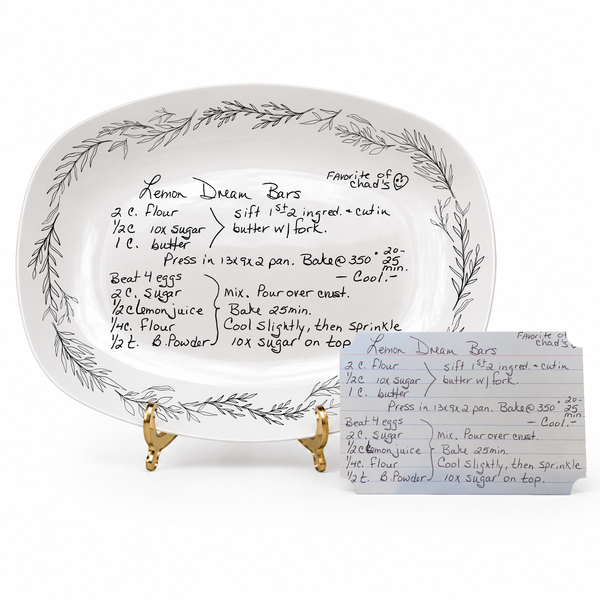 Favorite of
chad's
Lemon Dream Bars
2 c. flour sift 1st 2 ingred. + cut in
1/2c 10x sugar butter w/ fork.
1 c. butter
Press in 13x9x2 pan. Bake @ 350° 20-
25
min.
Beat 4 eggs — Cool. —
2 c. sugar Mix. Pour over crust.
1/2c lemon juice Bake 25min.
1/4c. flour Cool slightly, then sprinkle
1/2 t. B. Powder 10x sugar on top.
Favorite of
chad's
Lemon Dream Bars
2 c. flour sift 1st 2 ingred. + cut in
1/2c 10x sugar butter w/ fork.
1 c. butter
Press in 13x9x2 pan. Bake @ 350° 20-
25
min.
Beat 4 eggs — Cool. —
2 c. sugar Mix. Pour over crust.
1/2c lemon juice Bake 25min.
1/4c. flour Cool slightly, then sprinkle
1/2 t. B. Powder 10x sugar on top.